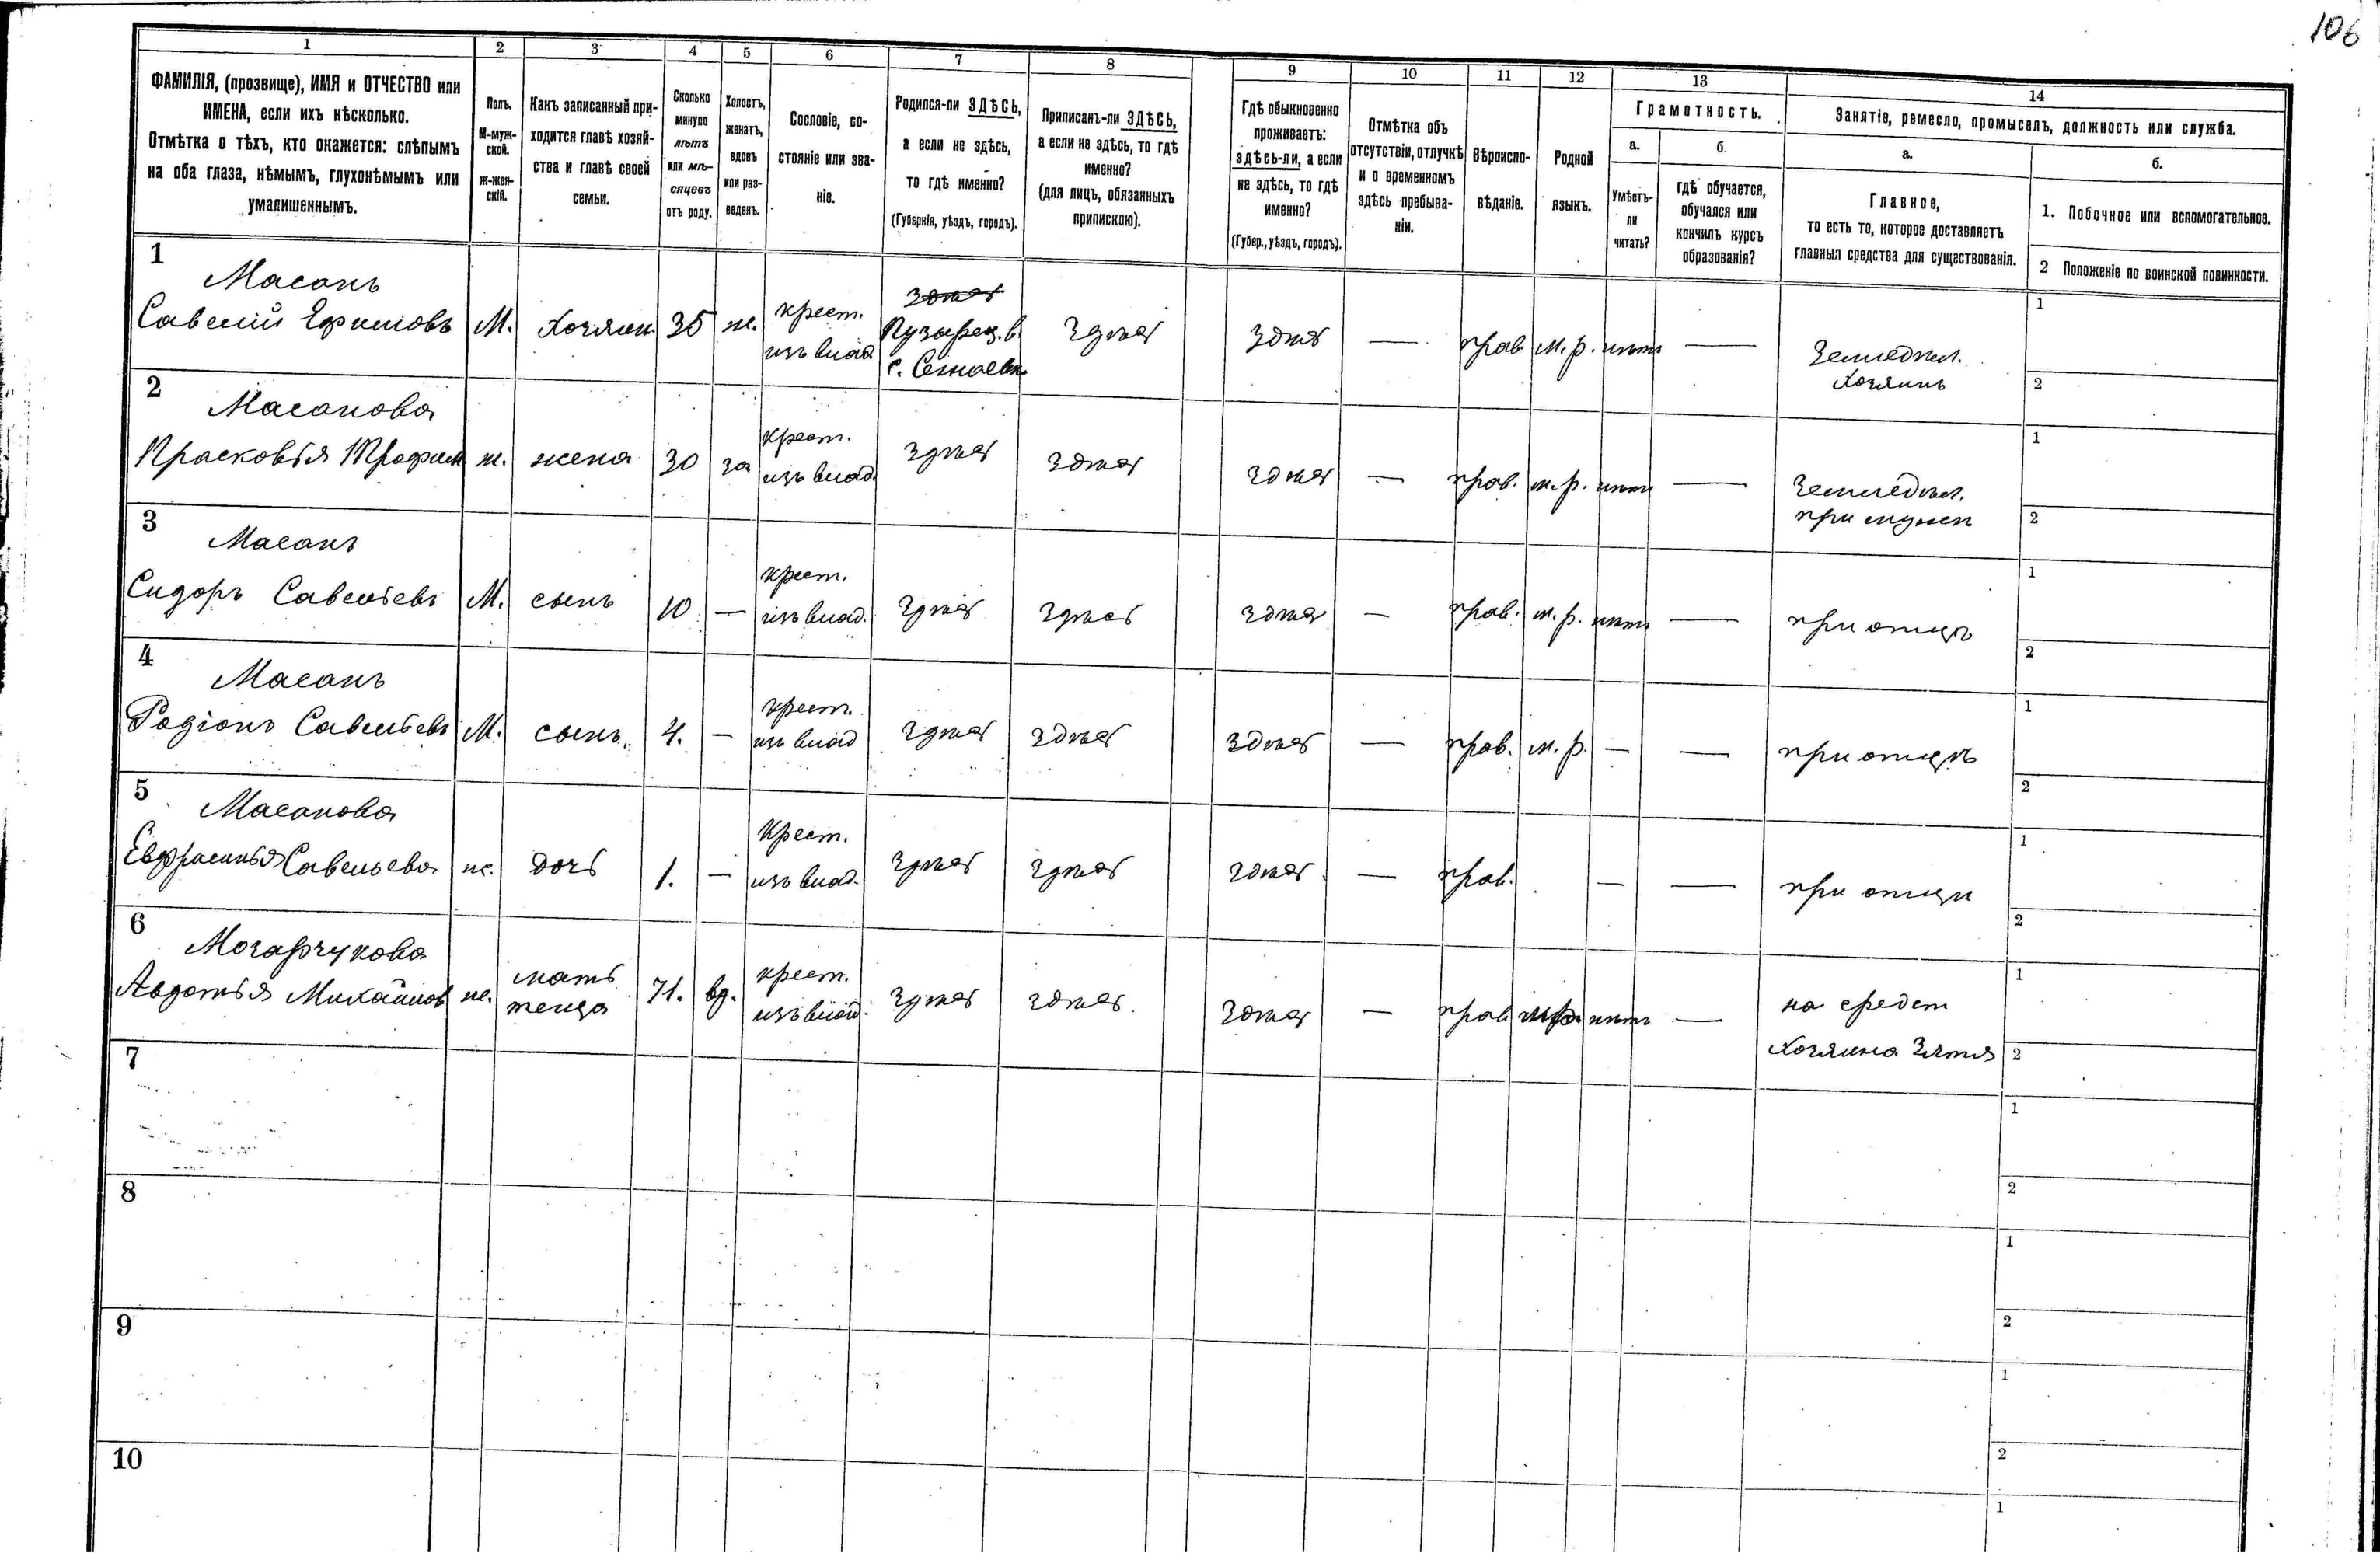 106
1 2 3 4 5 6 7 8 9 10 11 12 13 14
ФАМИЛІЯ, (прозвище), ИМЯ и ОТЧЕСТВО или
ИМЕНА, если ихъ нѣсколько.
Отмѣтка о тѣхъ, кто окажется: слѣпымъ
на оба глаза, нѣмымъ, глухонѣмымъ или
умалишеннымъ.
Полъ.
М-муж-
ской.
ж-жен-
скій.
Какъ записанный при-
ходится главѣ хозяй-
ства и главѣ своей
семьи.
Сколько
минуло
лѣтъ
или мѣ-
сяцевъ
отъ роду.
Холостъ,
женатъ,
вдовъ
или раз-
веденъ.
Сословіе, со-
стояніе или зва-
ніе.
Родился-ли ЗДѢСЬ,
а если не здѣсь,
то гдѣ именно?
(Губернія, уѣздъ, городъ).
Приписанъ-ли ЗДѢСЬ,
а если не здѣсь, то гдѣ
именно?
(для лицъ, обязанныхъ
припискою).
Гдѣ обыкновенно
проживаетъ:
здѣсь-ли, а если
не здѣсь, то гдѣ
именно?
(Губер., уѣздъ, городъ).
Отмѣтка объ
отсутствіи, отлучкѣ
и о временномъ
здѣсь пребыва-
ніи.
Вѣроиспо-
вѣданіе.
Родной
языкъ.
Грамотность.
а.
Умѣетъ-
ли
читать?
б.
гдѣ обучается,
обучался или
кончилъ курсъ
образованія?
Занятіе, ремесло, промыселъ, должность или служба.
а.
Главное,
то есть то, которое доставляетъ
главныя средства для существованія.
б.
1. Побочное или вспомогательное.
2 Положеніе по воинской повинности.
1
Масанъ
Савелій Ефимовъ М. Хозяин. 35 ж. крест. изъ влад. здѣсь Пузырец. в. с. здѣсь здѣсь — прав. м. р. нѣтъ — Земледѣл. Хозяинъ 1 2
2
Масанова
Прасковія Трофим ж. жена 30 за крест. изъ влад. здѣсь здѣсь здѣсь — прав. м. р. нѣтъ — Земледѣл. при мужѣ 1 2
3
Масанъ
Сидоръ Савельевъ М. сынъ 10 — крест. изъ влад. здѣсь здѣсь здѣсь — прав. м. р. нѣтъ — при отцѣ 1 2
4
Масанъ
Родіонъ Савельевъ М. сынъ. 4. — крест. изъ влад здѣсь здѣсь здѣсь — прав. м. р. — — при отцѣ 1 2
5
Масанова
Евфросинья Савельева ж. дочь 1. — Крест. изъ влад. здѣсь здѣсь здѣсь — прав. — — при отцѣ 1 2
6
Мочарчукова
Авдотья Михайлов ж. мать теща 71. вд. крест. изъ влад. здѣсь здѣсь здѣсь — прав м. р. нѣтъ — на средст Хозяина Зятя 1 2
7 1 2
8 1 2
9 1 2
10 1